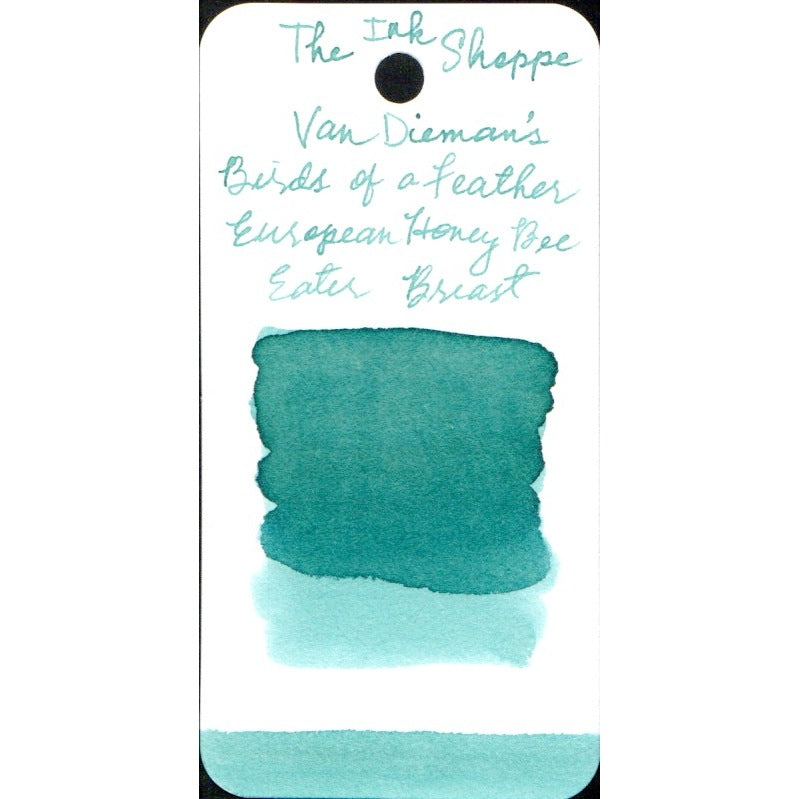 The Ink Shoppe
Van Dieman's
Birds of a Feather
European Honey Bee
Eater Breast